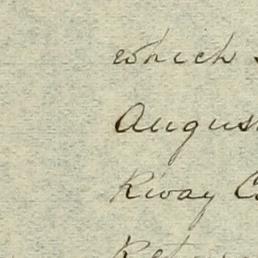 which
August
Rway C
Ret